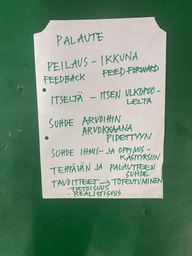 PALAUTE
PEILAUS - IKKUNA
FEEDBACK FEED FORWARD
ITSELTÄ - ITSEN ULKOPUO-
LELTA
SUHDE ARVOIHIN
ARVOKKAANA
PIDETTYYN
SUHDE IHMIS- JA OPPIMIS-
KÄSITYKSIIN
TEHTÄVÄN JA PALAUTTEEN
SUHDE
TAVOITTEET → TOTEUTUMINEN
· TIETOISUUS
REALISTISUUS